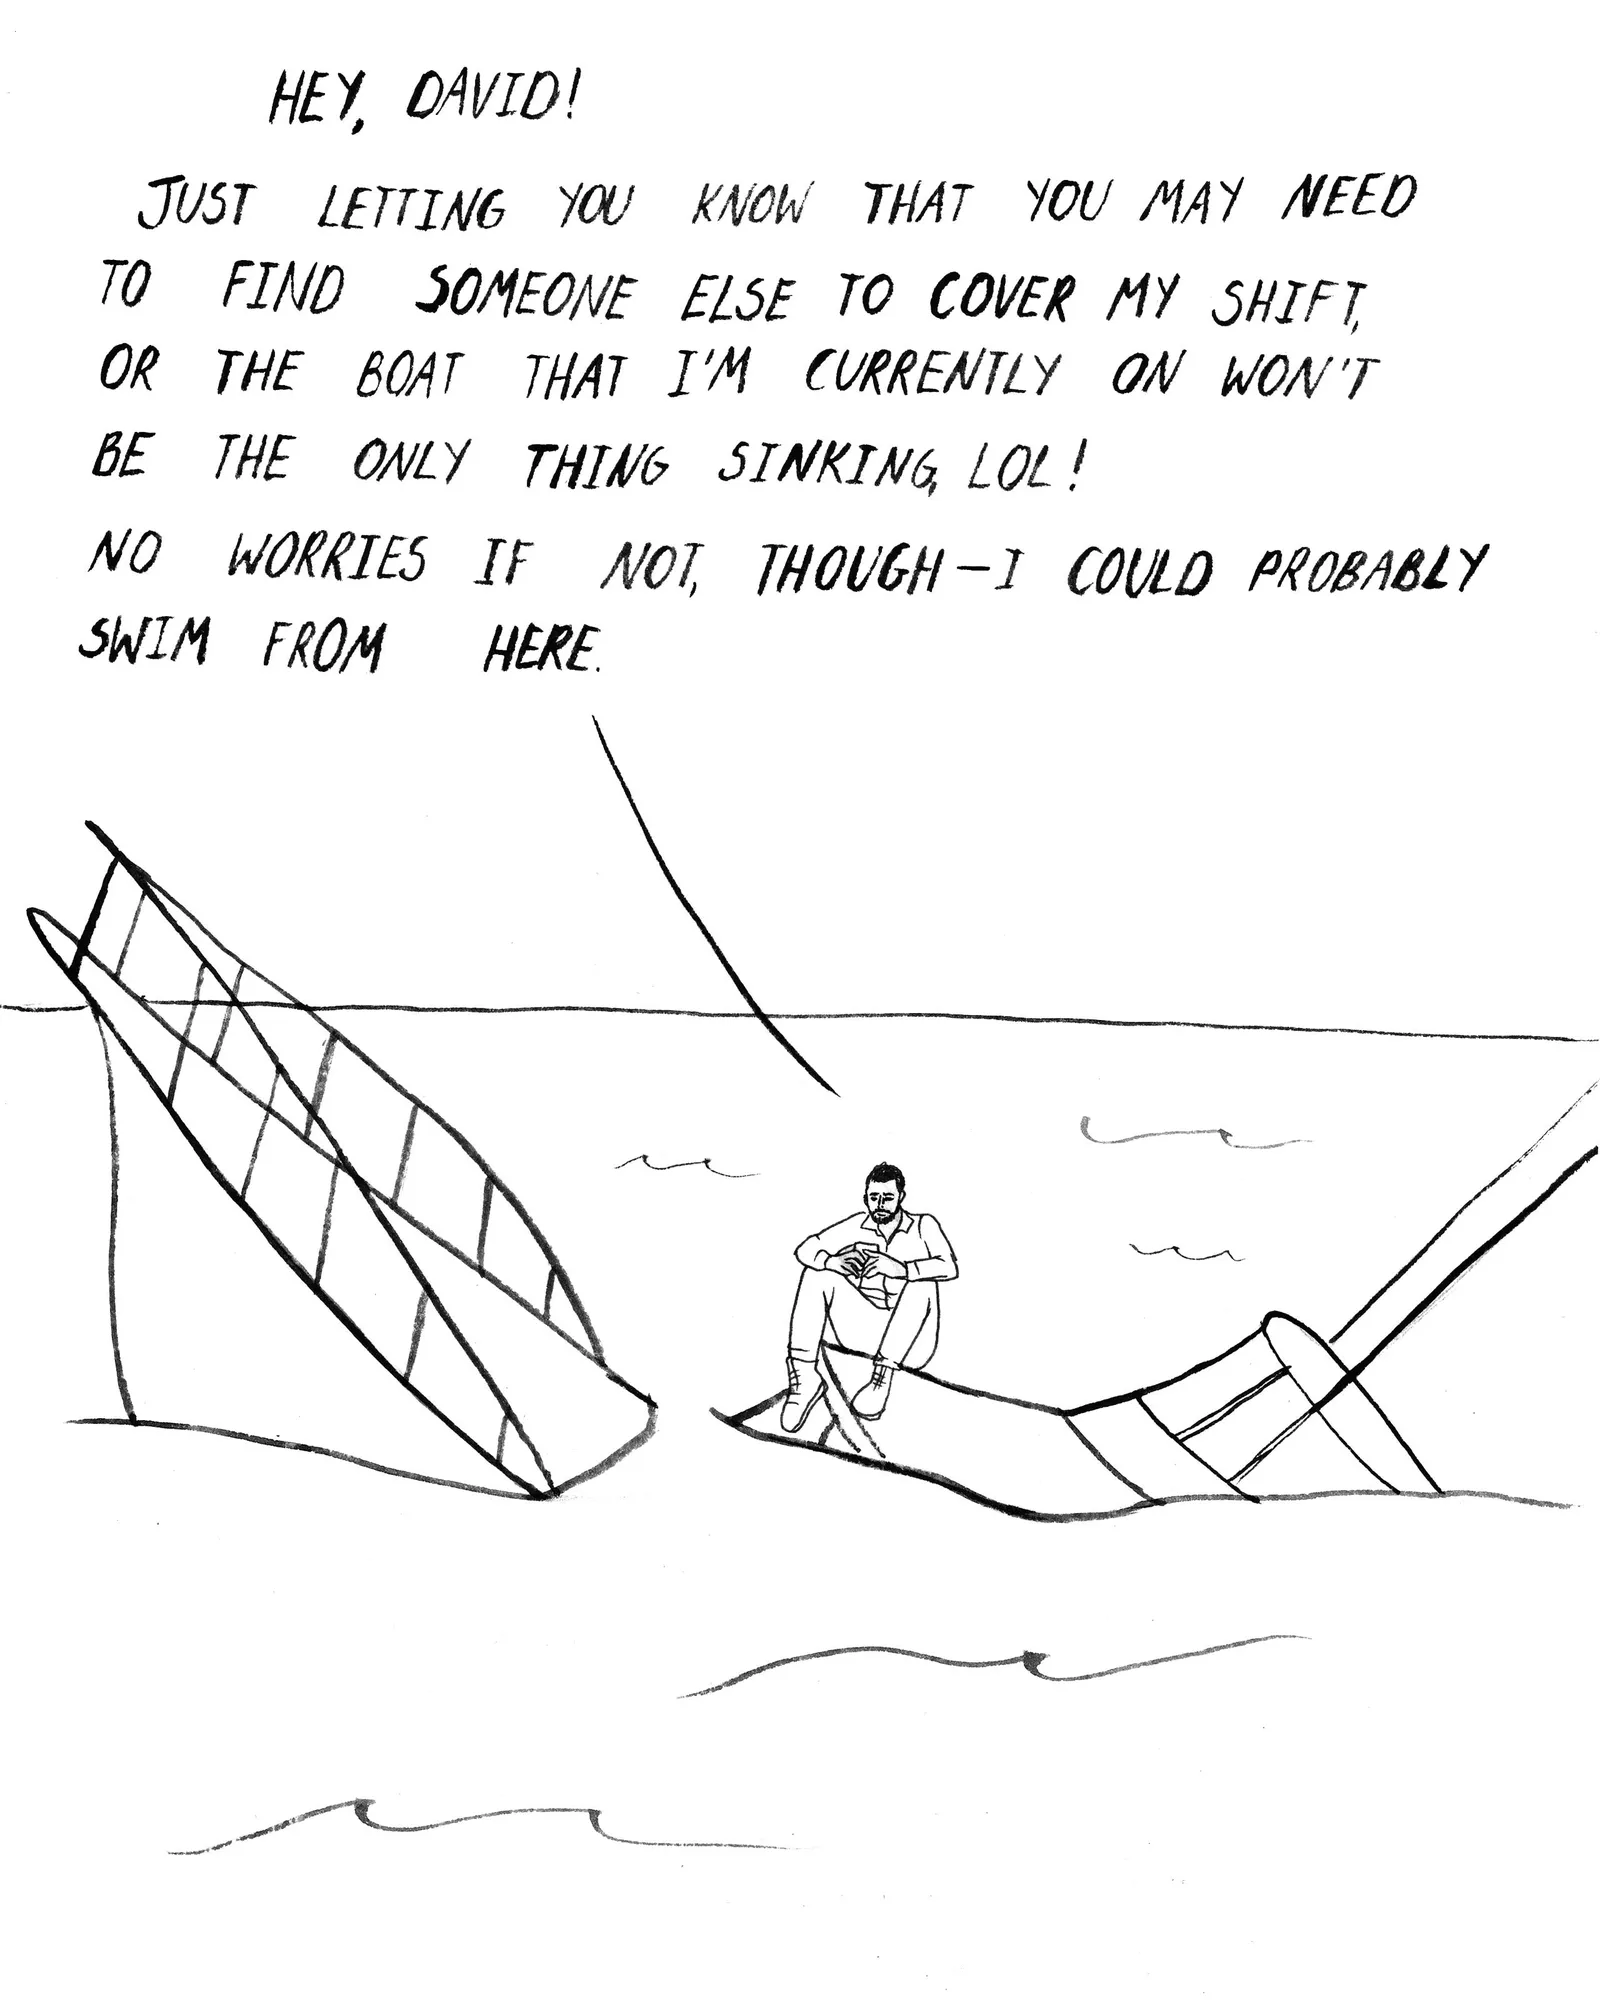 HEY, DAVID!
JUST LETTING YOU KNOW THAT YOU MAY NEED
TO FIND SOMEONE ELSE TO COVER MY SHIFT,
OR THE BOAT THAT I'M CURRENTLY ON WON'T
BE THE ONLY THING SINKING, LOL!
NO WORRIES IF NOT, THOUGH—I COULD PROBABLY
SWIM FROM HERE.